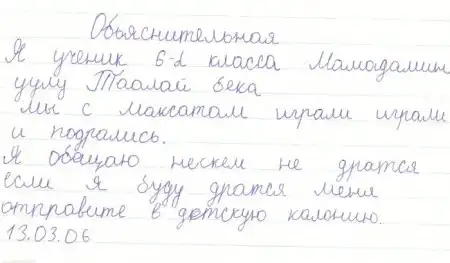 Объяснительная
Я ученик 6-д класса Мамадамин
уулу Таалай бека
мы с Максатам играли играли
и подрались.
Я обещаю нескем не дратся
если я буду дратся меня
отпправите в детскую калонию.
13.03.06